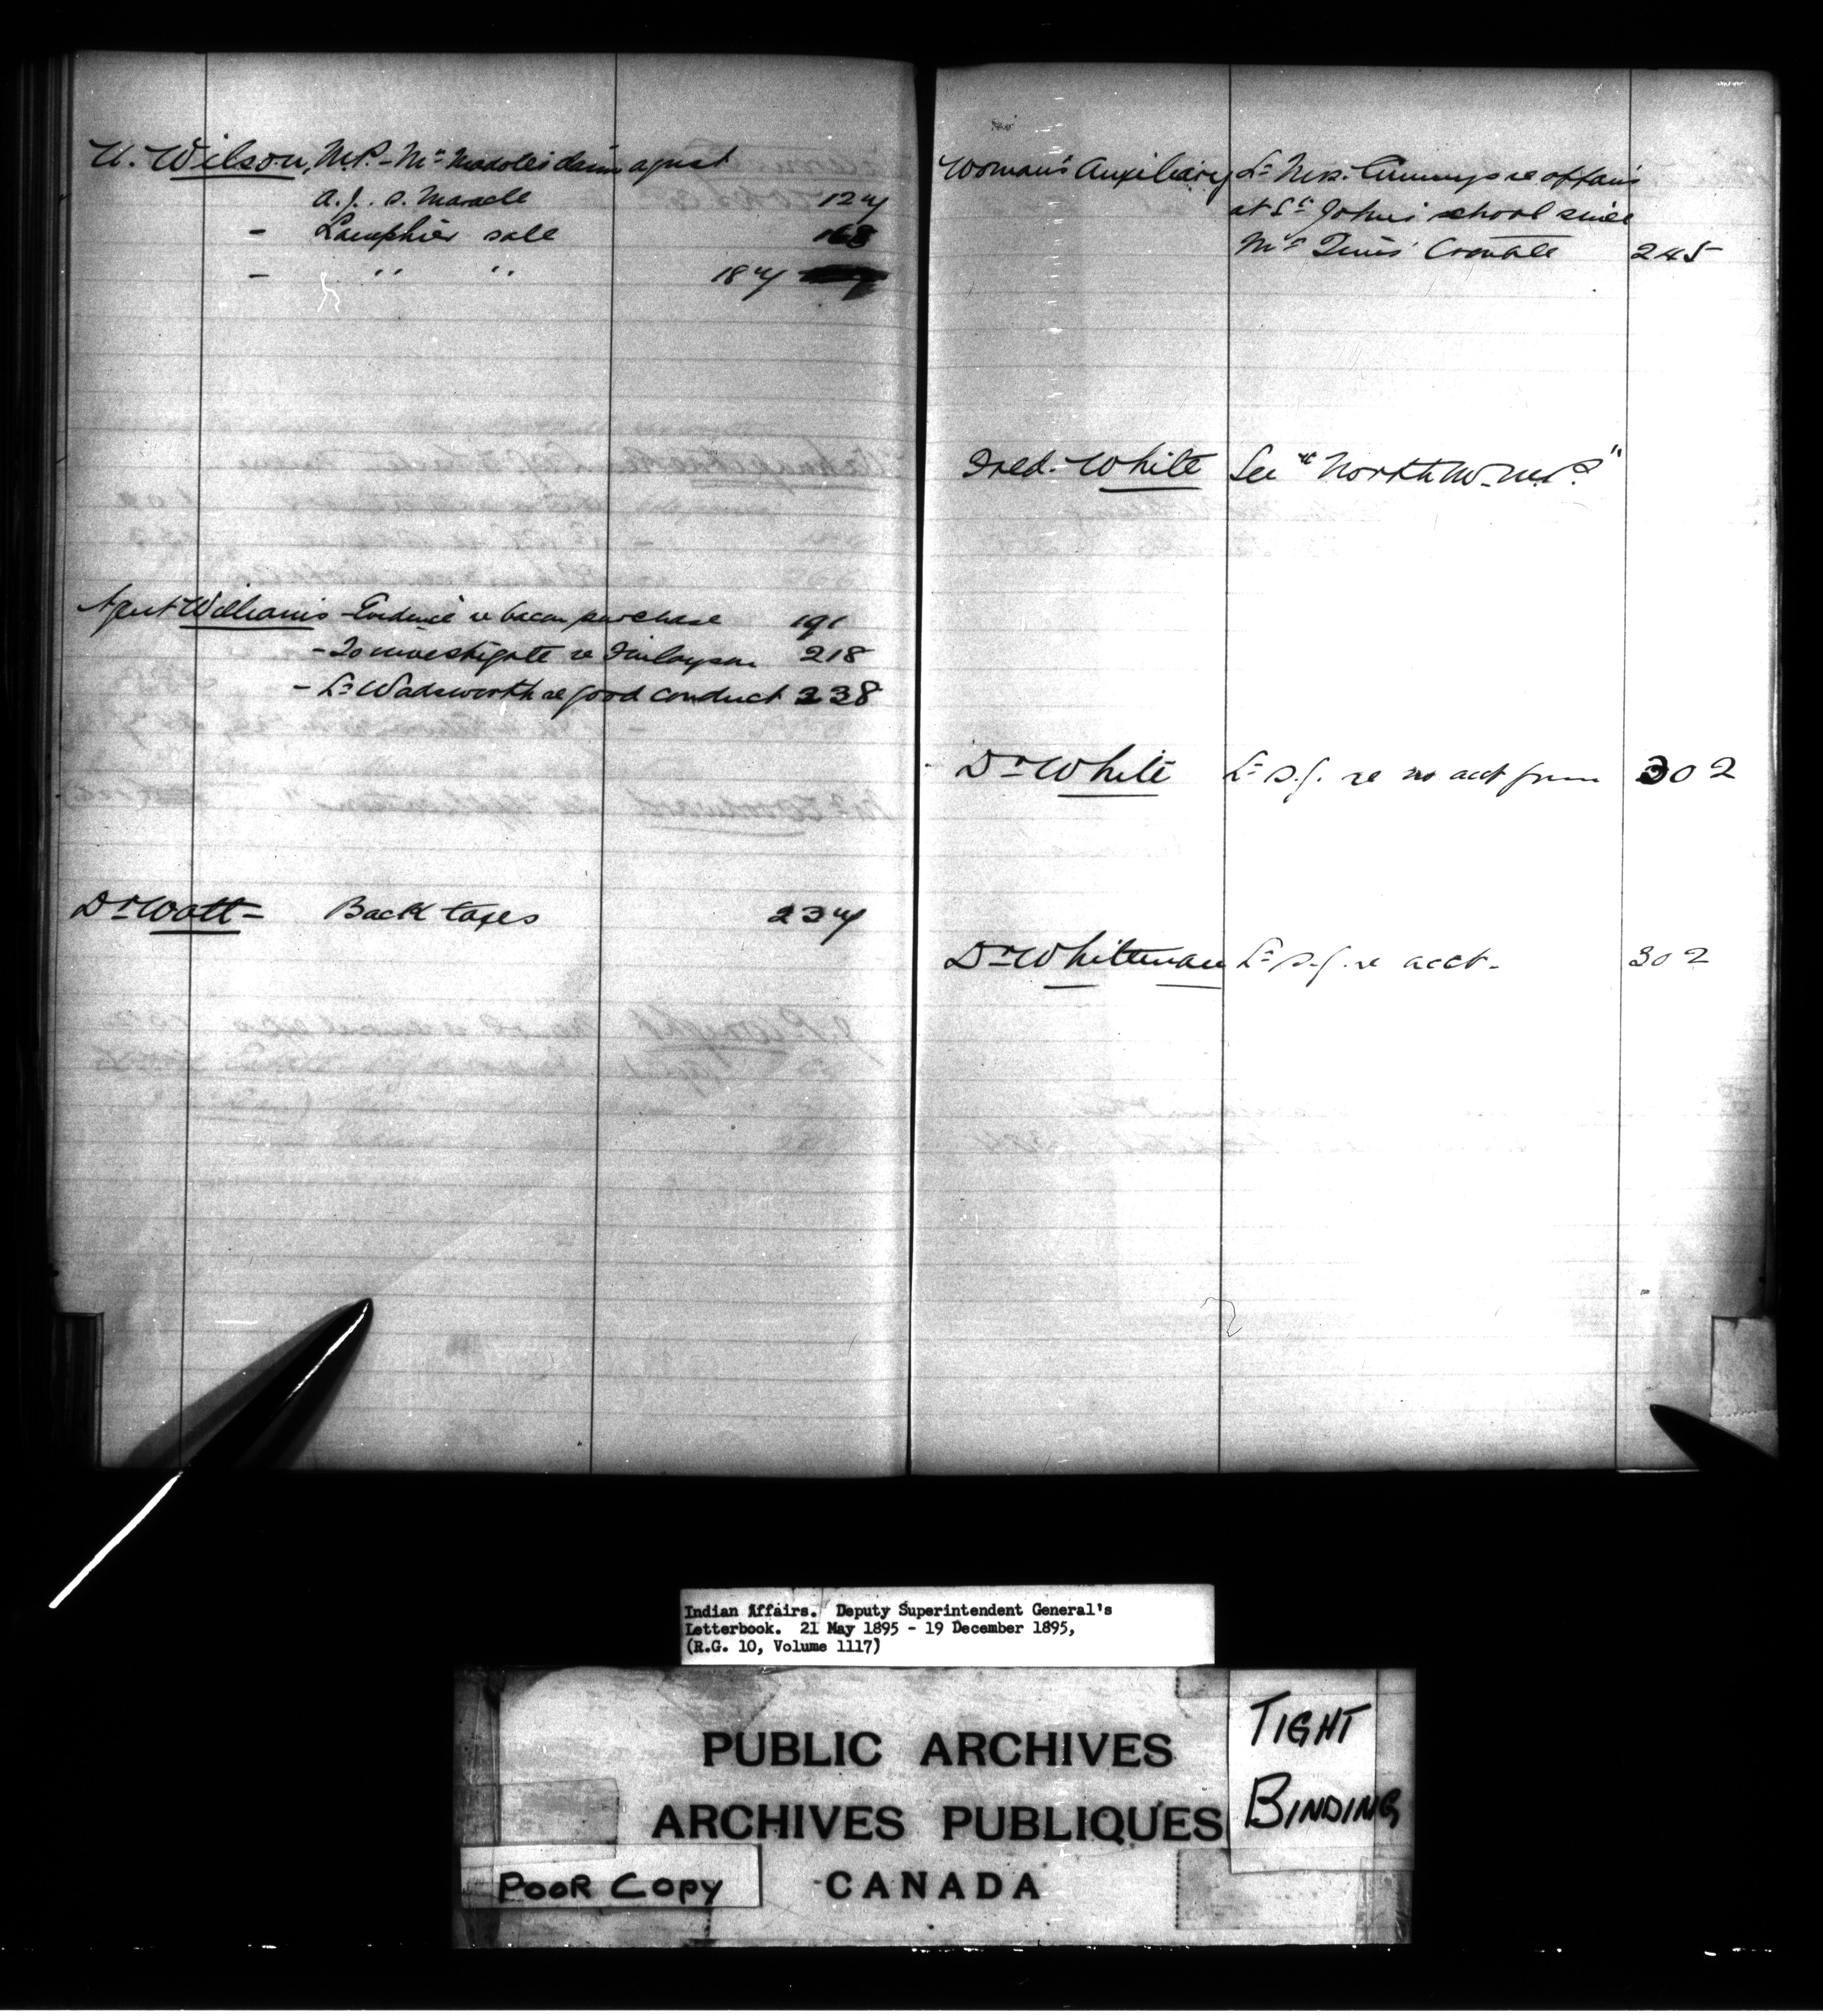 U. Wilson, M.P. - Mr Madole's claim agnst
A. J. S. Maracle 127
- Lanphier sale 168
- " " 187
Agent Williams - Evidence re bacon purchase 191
- To investigate re Finlayson 218
- Lr Wadsworth re good conduct 238
Dr Watt - Back taxes 237
Woman's Auxiliary Lr Mrs. Cummings re affairs
at St John's school since
Mr Tims' trouble 245
Fred. White See "North W. M. P."
Dr White Lr S.G. re no acct from 302
Dr Whiteman Lr S.G. re acct. 302
Indian Affairs. Deputy Superintendent General's
Letterbook. 21 May 1895 - 19 December 1895,
(R.G. 10, Volume 1117)
PUBLIC ARCHIVES
ARCHIVES PUBLIQUES
CANADA
TIGHT
BINDING
POOR COPY